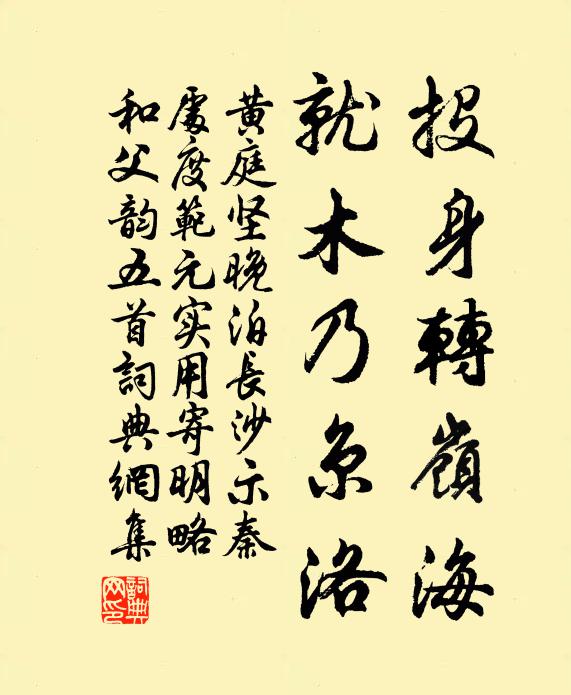 投身轉嶺海
就木乃京洛
黄庭坚晚泊長沙示秦
處度範元实用寄明略
和父韵五首詞典網集
詞典网印